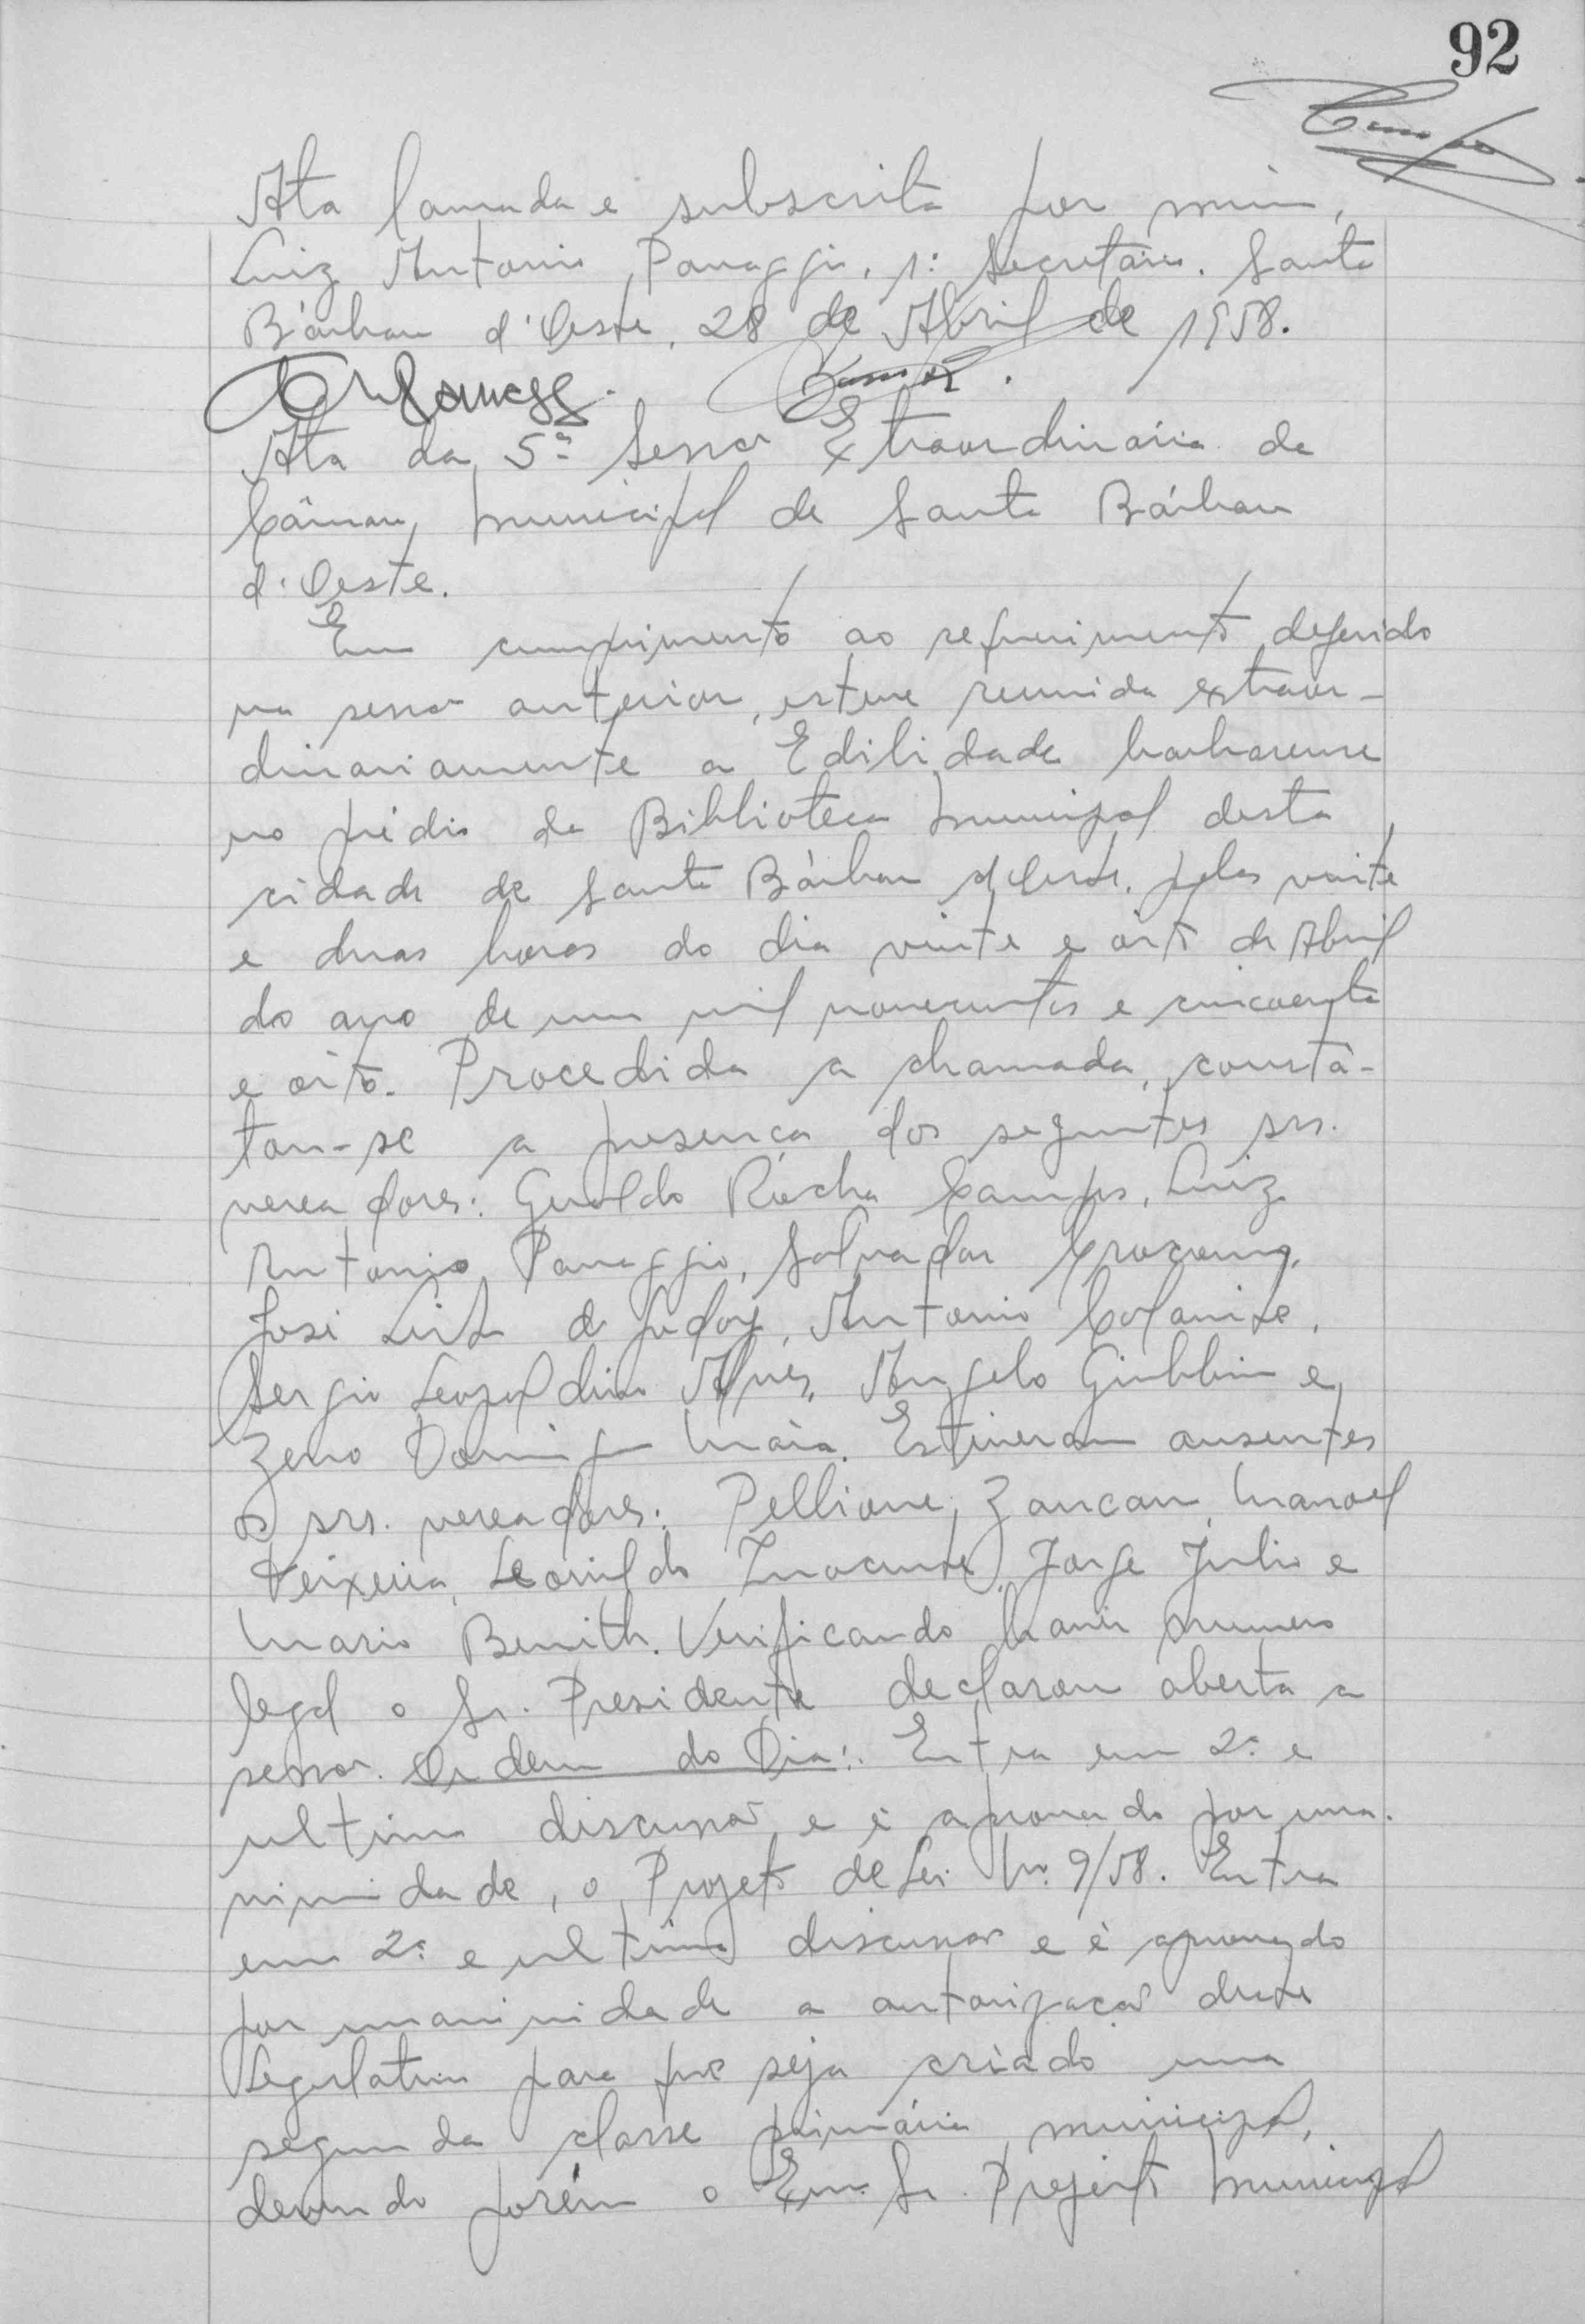 92
Ata lavrada e subscrita por mim,
Luiz Antonio Panaggio, 1º Secretário. Santa
Bárbara d'Oeste, 28 de Abril de 1958.
Ata da 5ª Sessão Extraordinária da
Câmara Municipal de Santa Bárbara
d'Oeste.
Em cumprimento ao requerimento deferido
na sessão anterior, esteve reunida extraor-
dinariamente a Edilidade barbarense
no prédio da Biblioteca Municipal desta
cidade de Santa Bárbara d'Oeste, pelas vinte
e duas horas do dia vinte e oito de Abril
do ano de um mil novecentos e cincoenta
e oito. Procedida a chamada, constá-
tou-se a presença dos seguintes srs.
vereadores: Geraldo Rocha Campos, Luiz
Antonio Panaggio, Salvador
José Lins de Godoy, Antonio
Sergio Leopoldino Alves, Angelo Giubbina e
Zeno Domingos Maia. Estiveram ausentes
os srs. vereadores: Zancan, Manoel
Teixeira, Leonildo Inocente, Jorge Julio e
Mario Benith. Verificando haver numero
legal o Sr. Presidente declarou aberta a
sessão. Ordem do Dia: Entra em 2ª e
ultima discussão e é aprovado por una-
nimidade, o Projeto de Lei Nº 9/58. Entra
em 2ª e ultima discussão e é aprovado
por unanimidade a autorização deste
Legislativo para que seja criado uma
segunda classe primária municipal,
devendo porém o Exmo. Sr. Prefeito Municipal